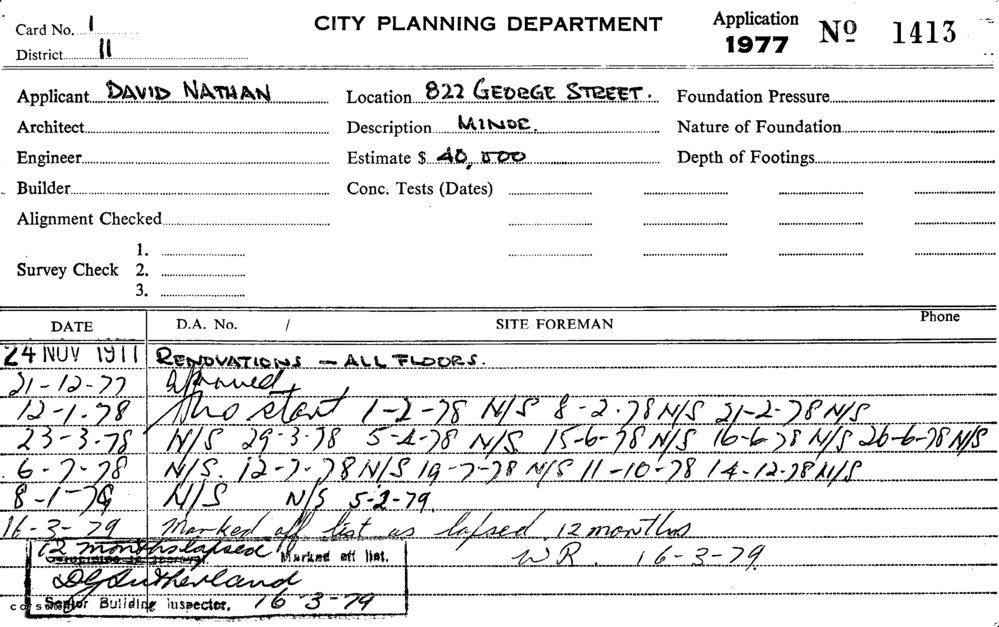 Card No. 1
CITY PLANNING DEPARTMENT
Application 1977 Nº 1413
District 11
Applicant DAVID NATHAN
Location 822 GEORGE STREET.
Foundation Pressure
Architect
Description MINOR.
Nature of Foundation
Engineer
Estimate $ 40,000
Depth of Footings
Builder
Conc. Tests (Dates)
Alignment Checked
1.
Survey Check 2.
3.
DATE D.A. No. / SITE FOREMAN Phone
24 NOV 1977 RENOVATIONS - ALL FLOORS.
21-12-77 Approved
12-1-78 No start 1-2-78 N/S 8-2-78 N/S 21-2-78 N/S
23-3-78 N/S 29-3-78 5-4-78 N/S 15-6-78 N/S 16-6-78 N/S 26-6-78 N/S
6-7-78 N/S. 12-7-78 N/S 19-7-78 N/S 11-10-78 14-12-78 N/S
8-1-79 N/S N/S 5-2-79
16-3-79 Marked off list as lapsed 12 months
12 months lapsed Marked off list.
WR. 16-3-79
DG Sutherland
Senior Building inspector. 16-3-79